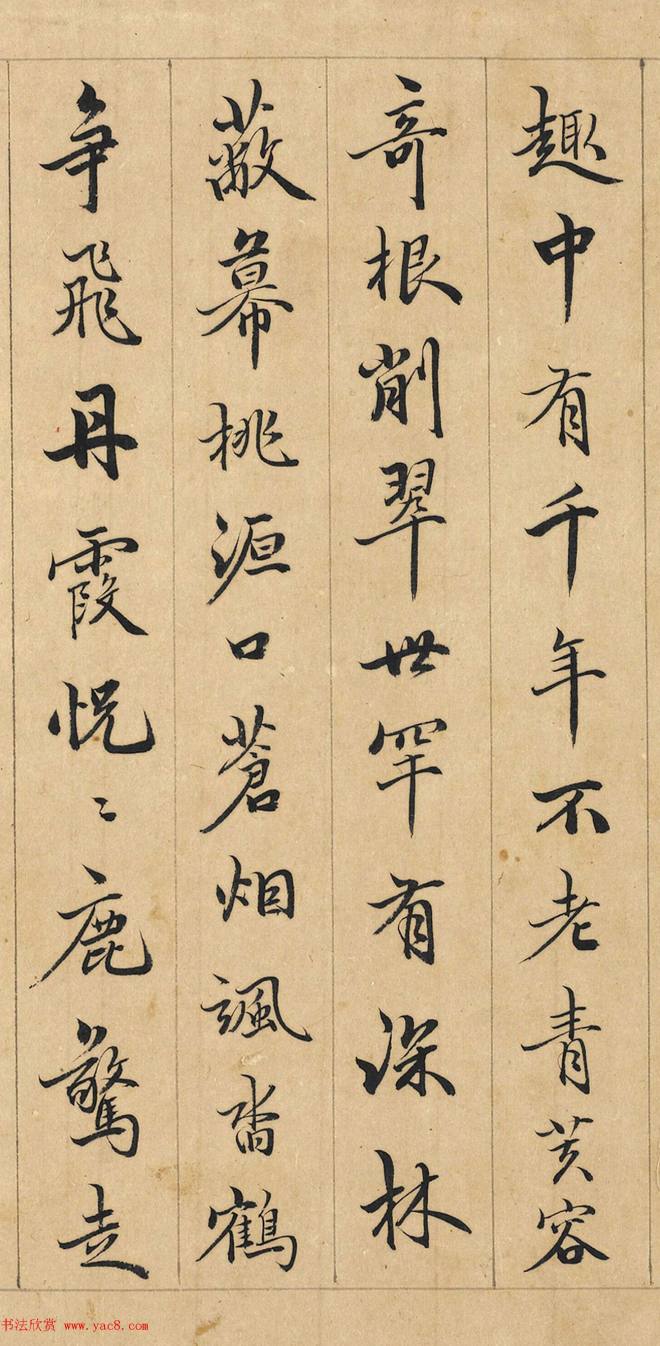 趣中有千年不老青芙容
奇根削翠世罕有深林
蔽幕桃源口蒼烟颯畨鶴
争飛丹霞恍〻鹿驚走
书法欣赏 www.yac8.com